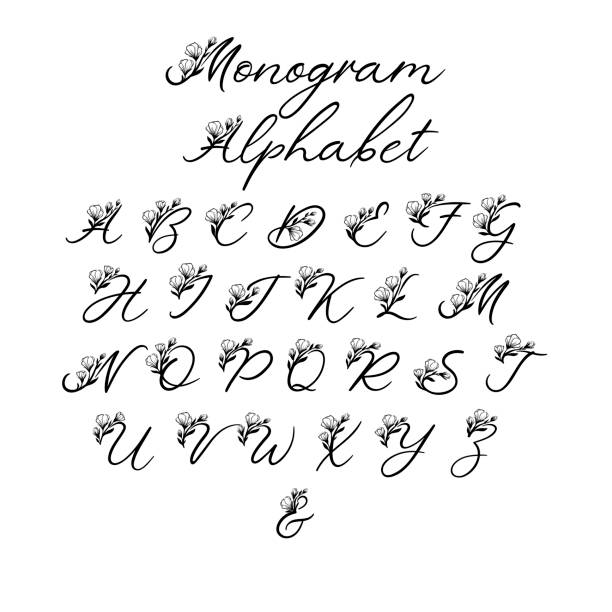 Monogram
Alphabet
A B C D E F G
H I J K L M
N O P Q R S T
U V W X Y Z
&